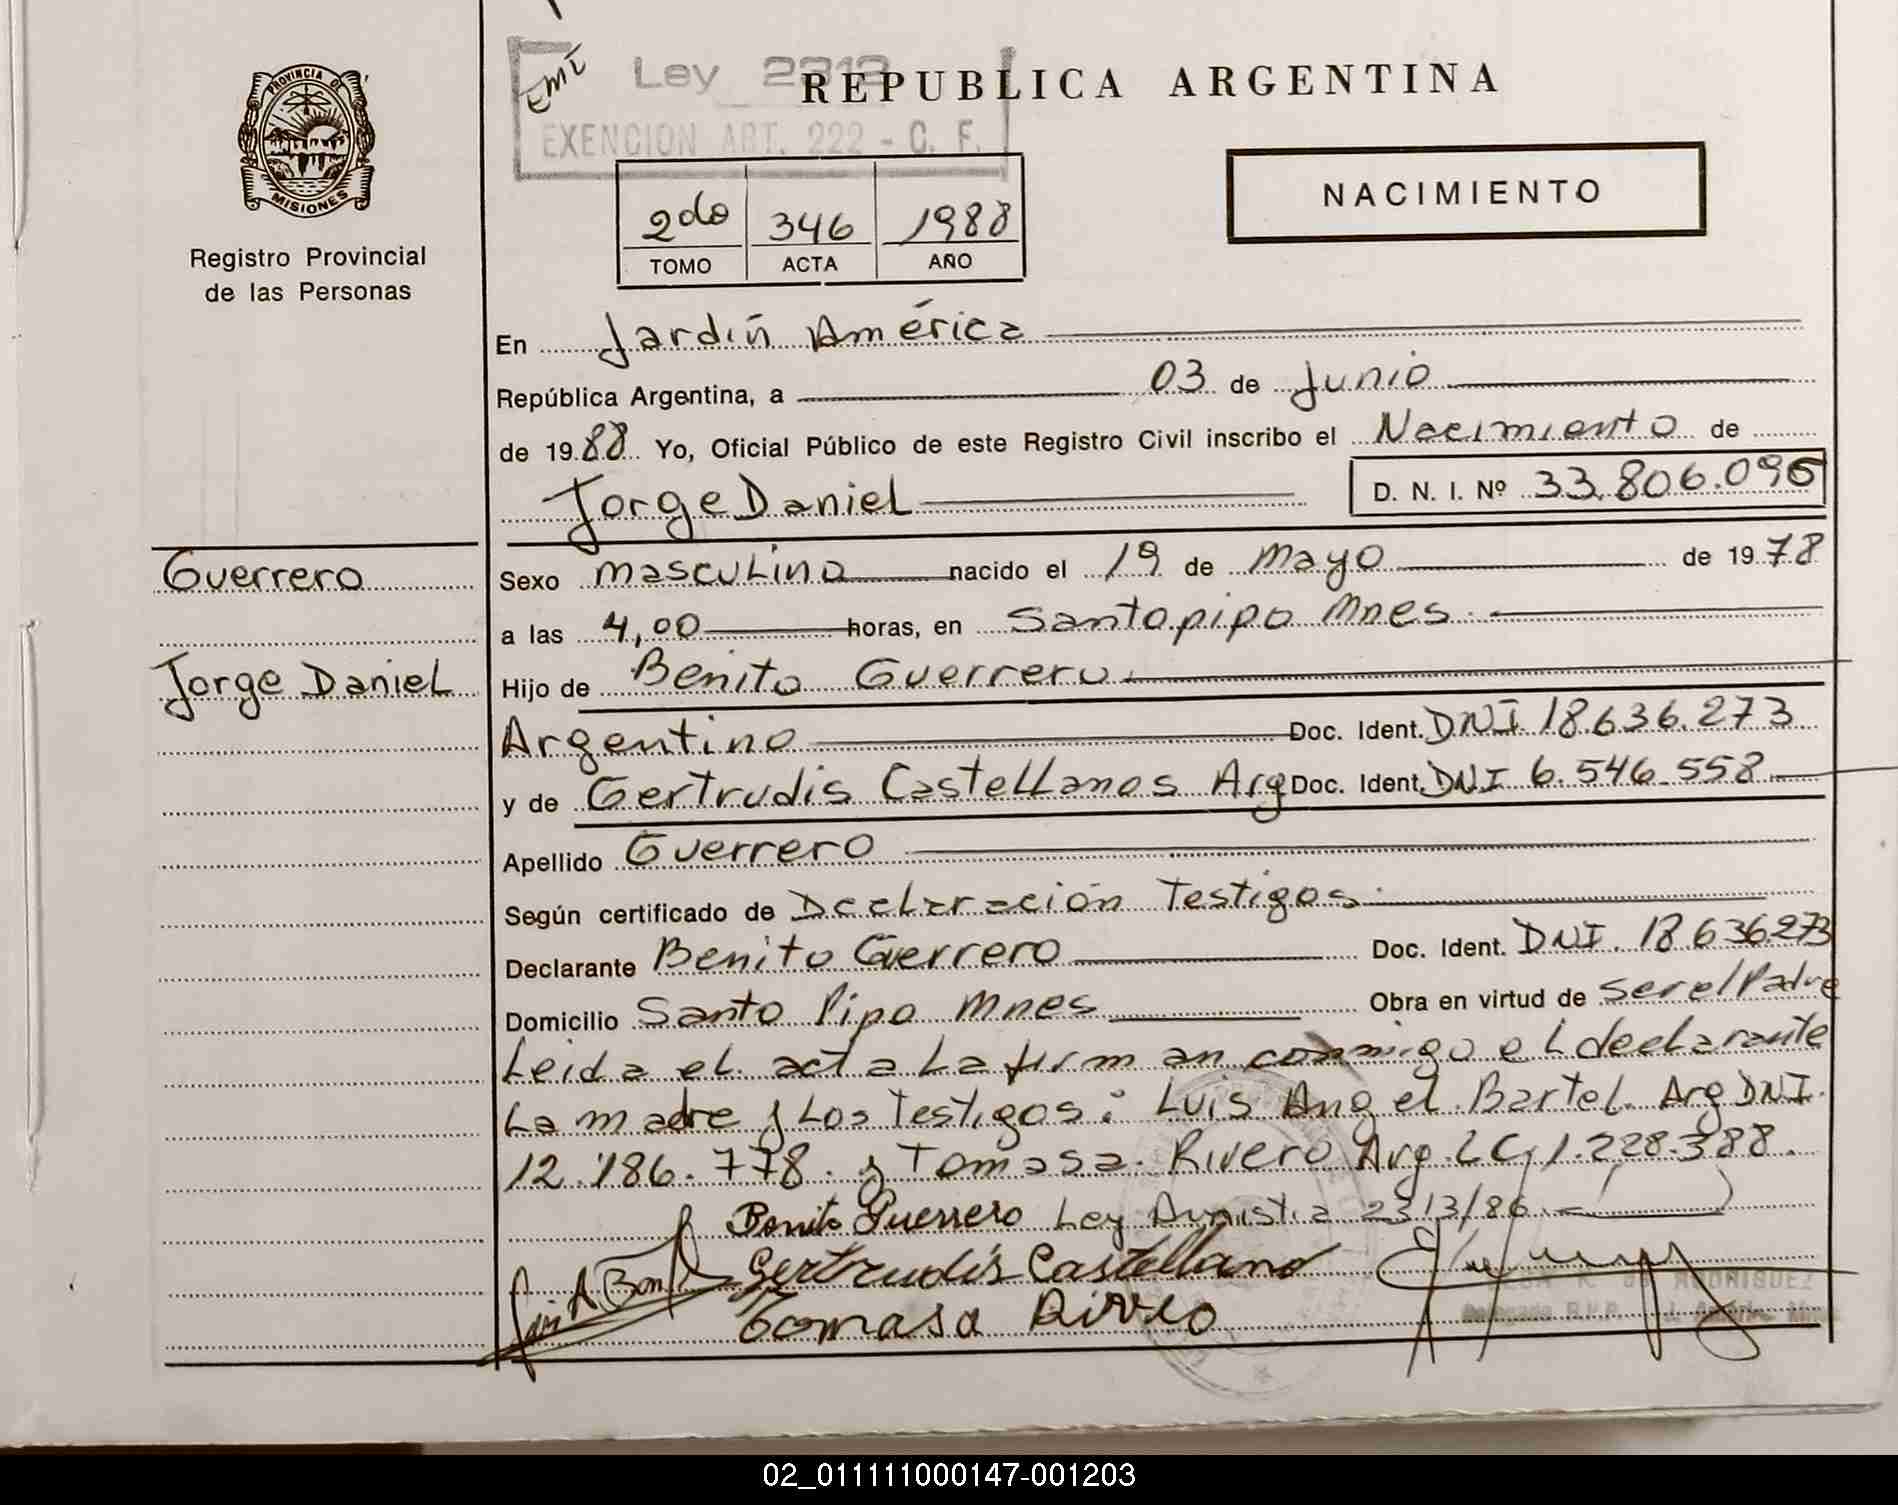 PROVINCIA DE
MISIONES
Registro Provincial
de las Personas
Emi
Ley 2313
EXENCION ART. 222 - C. F.
REPUBLICA ARGENTINA
NACIMIENTO
2do 346 1988
TOMO ACTA AÑO
En Jardín América
República Argentina, a 03 de Junio
de 1988 Yo, Oficial Público de este Registro Civil inscribo el Nacimiento de
Jorge Daniel D. N. I. Nº 33.806.096
Guerrero
Jorge Daniel
Sexo masculino nacido el 19 de Mayo de 1978
a las 4,00 horas, en Santo pipo Mnes.
Hijo de Benito Guerrero.
Argentino Doc. Ident. DNI 18.636.273
y de Gertrudis Castellanos Arg Doc. Ident. DNI 6.546.558
Apellido Guerrero
Según certificado de Declaración Testigos.
Declarante Benito Guerrero Doc. Ident. DNI. 18.636.273
Domicilio Santo Pipo Mnes Obra en virtud de ser el Padre
Leida el acta la firman conmigo el declarante
La madre y Los Testigos: Luis Angel Bartel. Arg DNI.
12.186.778. y Tomasa Rivero Arg. LC. 1.228.388.
Benito Guerrero Ley Amnistia 2313/86
Gertrudis Castellano
Tomasa Rivero
RODRIGUEZ
02_011111000147-001203